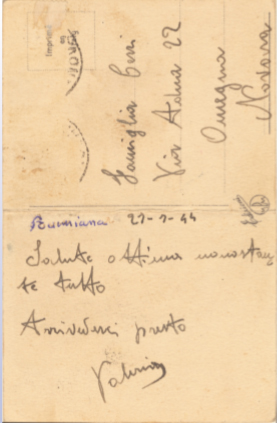 Famiglia Ciri
Via Adua 22
Omegna
Novara
Bumiana 27-7-44
Salute ottima nonostan
te tutto
Arrivederci presto
Valerio